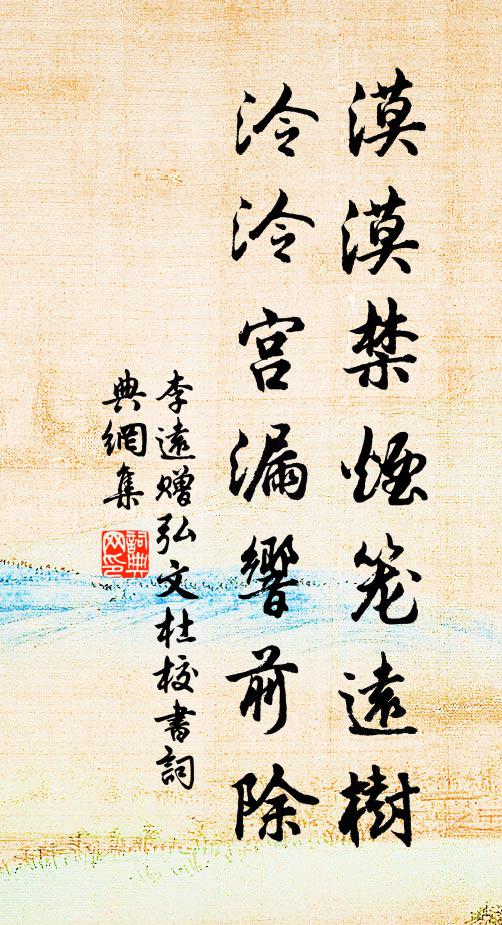 漠漠禁煙笼遠樹
泠泠宫漏響前除
李遠赠弘文杜校書詞
典網集
詞典
网印